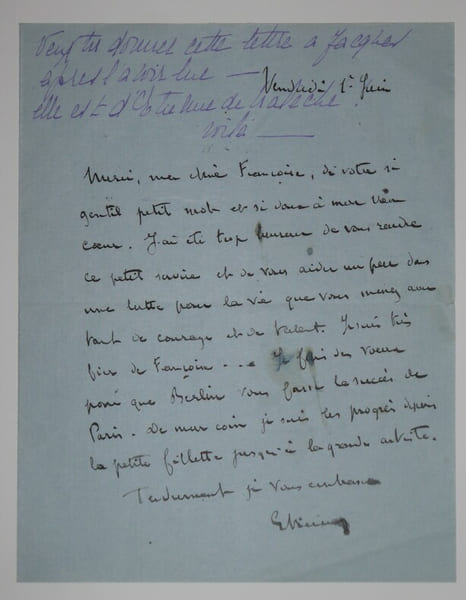 Veux tu donner cette lettre a Jacques
après l'avoir lue —
elle est d'Etienne de
voilà —
Vendredi 1er Juin
Merci, ma chère Françoise, de votre si
gentil petit mot et si doux à mon vieux
cœur. J'ai été trop heureux de vous rendre
ce petit service et de vous aider un peu dans
une lutte pour la vie que vous menez avec
tant de courage et de talent. Je suis très
fier de Françoise . . . Je fais des vœux
pour que Berlin vous fasse le succès de
Paris. De mon coin je suis les progrès depuis
la petite fillette jusqu'à la grande artiste.
Tendrement je vous embrasse
Etienne